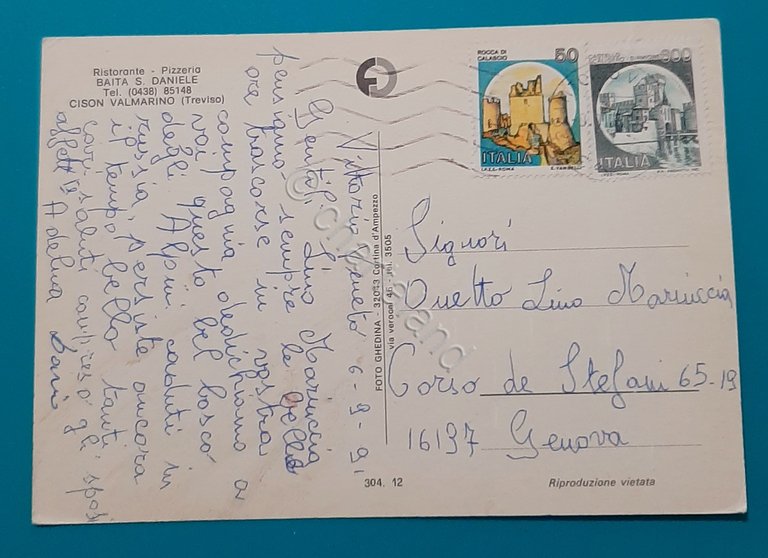 Ristorante - Pizzeria
BAITA S. DANIELE
Tel. (0438) 85148
CISON VALMARINO (Treviso)
ROCCA DI
CALASCIO
50
ITALIA
I.P.Z.S.-ROMA
300
ITALIA
I.P.Z.S.-ROMA
Vittorio Veneto 6-9-91
Gentili Lino Mariuccia
pensiamo sempre le belle
ore trascorse in vostra
compagnia dedichiamo a
voi questo bel bosco
degli Alpini caduti in
russia, persiste ancora
il tempo bello tanti
cari saluti compreso gli sposi
affett. Adelma
FOTO GHEDINA - 32043 Cortina d'Ampezzo
via verocai 46 - tel. 3505
Signori
Ouetto Lino Mariuccia
Corso de Stefani 65-19
16137 Genova
304. 12
Riproduzione vietata
© cherryland